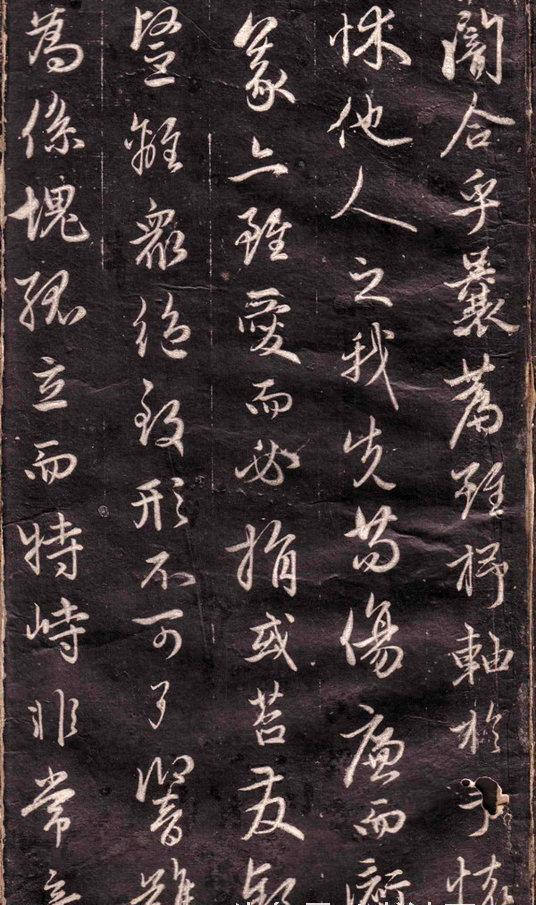 闇合乎曩篇雖杼軸於予懷
怵他人之我先苟傷廉而愆
義亦雖愛而必捐或苕發穎
豎離衆絶致形不可了響難
為係塊孤立而特峙非常音